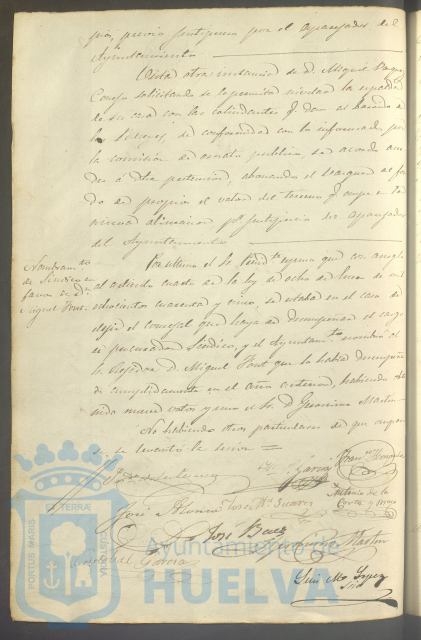 previo justiprecio por el aparejador del
Ayuntamiento
Vista otra instancia de D. Miguel
Conejo solicitando se le permita nivelar la espalda
de su casa con las colindantes q. dan al
de conformidad con lo informado por
la comision de ornato publico, se acordó
der á dha pretension, abonando el al fon
do de propios el valor del terreno q. ocupe en la
nueva alineacion pr. justiprecio del aparejador
del Ayuntamiento
Nombramto.
de Síndico en
favor de Dn.
Miguel Font.
Por ultimo el Sr. Presidte. espuso que con arreglo
al articulo cuarto de la ley de ocho de Enero de mil
ochocientos cuarenta y cinco, se estaba en el caso de
elegir el concejal que haya de desempeñar el cargo
de procurador Síndico, y el Ayuntamto. nombró al
Sr. Regidor D. Miguel Font que lo habia desempeña
do cumplidamente en el año anterior, habiendo
nido nueve votos y uno el Sr. D. Geronimo Martin
No habiendo otros particulares de que ocupar
se, se levantó la sesion =
Garcia
José Ma. Suarez
Antonio de la
Corte y
José Baez
Geronimo Martin
Garcia
Luis M. Lopez
Srio
PORTUS MARIS
ET TERRAE
CUSTODIA
Ayuntamiento de
HUELVA